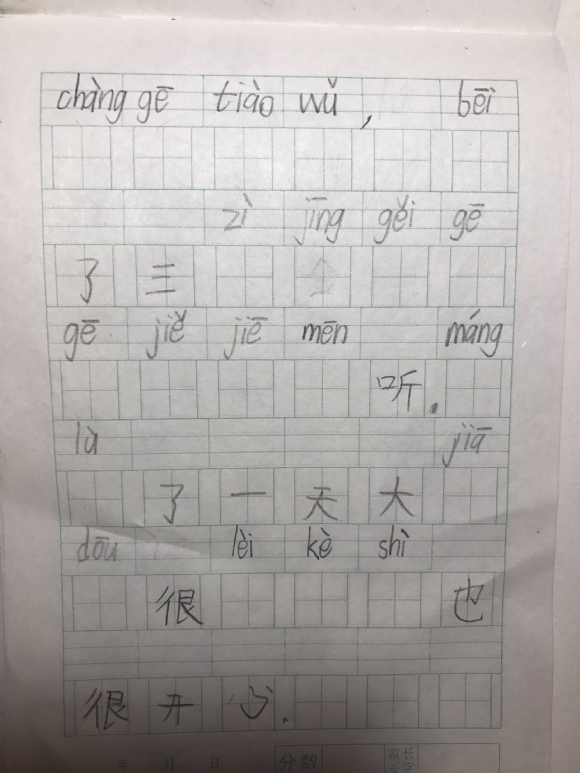 chàng gē tiào wǔ, bēi
zì jīng gěi gē
了三
gē jiě jiē mēn máng
听.
lù jiā
了一天大
dōu lèi kè shì
很 也
很开心.
年 月 日 分数